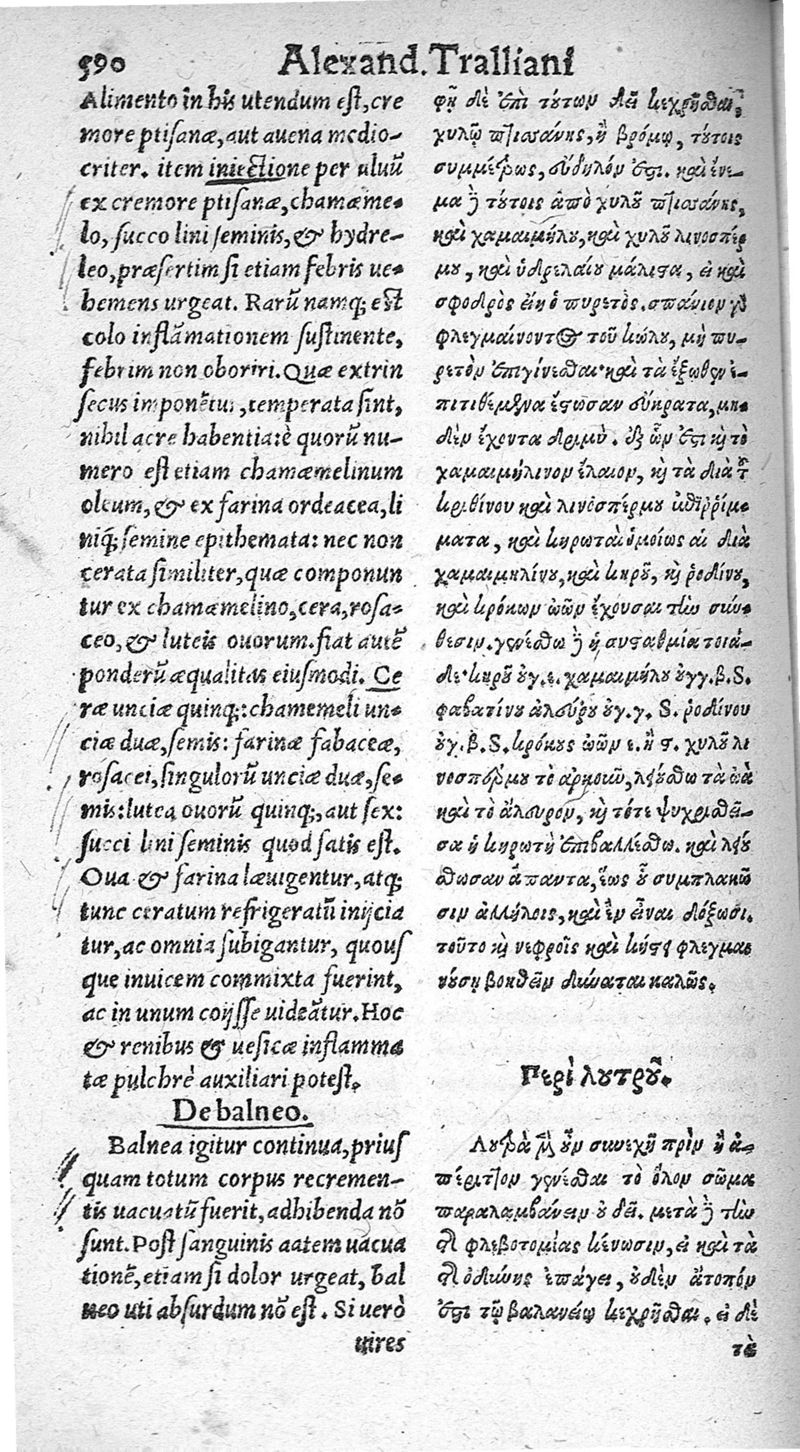 590 Alexand. Tralliani
Alimento in his utendum est, cre
more ptisanæ, aut auena medio-
criter. item iniectione per aluũ
ex cremore ptisanæ, chamæme-
lo, succo lini seminis, & hydre-
leo, præsertim si etiam febris ue-
hemens urgeat. Rarũ namq; est
colo inflãmationem sustinente,
febrim non oboriri. Quæ extrin
secus imponẽtur, temperata sint,
nihil acre habentia: è quorũ nu-
mero est etiam chamæmelinum
oleum, & ex farina ordeacea, li
niq; semine epithemata: nec non
cerata similiter, quæ componun
tur ex chamæmelino, cera, rosa-
ceo, & luteis ouorum. fiat autẽ
ponderũ æqualitas eiusmodi. Ce
ræ unciæ quinq;: chamemeli un-
ciæ duæ, semis: farinæ fabaceæ,
rosacei, singulorũ unciæ duæ, se-
mis: lutea ouorũ quinq;, aut sex:
succi lini seminis quod satis est.
Oua & farina læuigentur, atq;
tunc ceratum refrigeratũ inijcia
tur, ac omnia subigantur, quous
que inuicem commixta fuerint,
ac in unum coijsse uideãtur. Hoc
& renibus & uesicæ inflamma
tæ pulchrè auxiliari potest.
De balneo.
Balnea igitur continua, prius
quam totum corpus recremen-
tis uacuatũ fuerit, adhibenda nõ
sunt. Post sanguinis autem uacua
tionẽ, etiam si dolor urgeat, bal
neo uti absurdum nõ est. Si uerò
uires
φῇ δὲ ἐπὶ τούτων δεῖ κεχρῆσθαι,
χυλῷ πτισσάνης, ἢ βρόμῳ, τούτοις
συμμέτρως, εὔδηλόν ἐστι. καὶ ἔνε-
μα δὲ τούτοις ἀπὸ χυλοῦ πτισσάνης,
καὶ χαμαιμήλου, καὶ χυλοῦ λινοσπέρ
μου, καὶ ὑδρελαίου μάλιστα, εἰ καὶ
σφοδρὸς εἴη ὁ πυρετὸς. σπάνιον γὰρ
φλεγμαίνοντος τοῦ κώλου, μὴ πυ-
ρετὸν ἐπιγίνεσθαι· καὶ τὰ ἔξωθεν ἐ-
πιτιθέμενα ἔστωσαν εὔκρατα, μη-
δὲν ἔχοντα δριμὺ. ἐξ ὧν ἐστι καὶ τὸ
χαμαιμήλινον ἔλαιον, καὶ τὰ διὰ τῆς
κριθίνου καὶ λινοσπέρμου ἐπιρρίμ-
ματα, καὶ κηρωταὶ ὁμοίως αἱ διὰ
χαμαιμηλίνου, καὶ κηροῦ, καὶ ῥοδίνου,
καὶ κρόκων ὠῶν ἔχουσαι τὴν σύν-
θεσιν. γενέσθω δὲ ἡ συσταθμία τοιά-
δε· κηροῦ ὀγ. ε. χαμαιμήλου ὀγγ. β. S.
φαβατίνου ἀλεύρου ὀγ. γ. S. ῥοδίνου
ὀγ. β. S. κρόκους ὠῶν ε. ἢ ϛ. χυλοῦ λι
νοσπέρμου τὸ ἀρκοῦν, λειούσθω τὰ ὠὰ
καὶ τὸ ἄλευρον, καὶ τότε ψυχρισθεῖ-
σα ἡ κηρωτὴ ἐπιβαλλέσθω. καὶ λειού
σθωσαν ἅπαντα, ἕως οὗ συμπλακῶ
σιν ἀλλήλοις, καὶ ἓν εἶναι δόξωσι.
τοῦτο καὶ νεφροῖς καὶ κύστει φλεγμαι
νούσῃ βοηθεῖν δύναται καλῶς.
Περὶ λουτροῦ.
Λουτρὰ μὲν οὖν συνεχῆ πρὶν ἢ ἀ-
πέριττον γενέσθαι τὸ ὅλον σῶμα
παραλαμβάνειν οὐ δεῖ. μετὰ δὲ τὴν
τῆς φλεβοτομίας κένωσιν, εἰ καὶ τὰ
τῆς ὀδύνης ἐπάγει, οὐδὲν ἄτοπόν
ἐστι τῷ βαλανείῳ κεχρῆσθαι. εἰ δὲ
τὰ